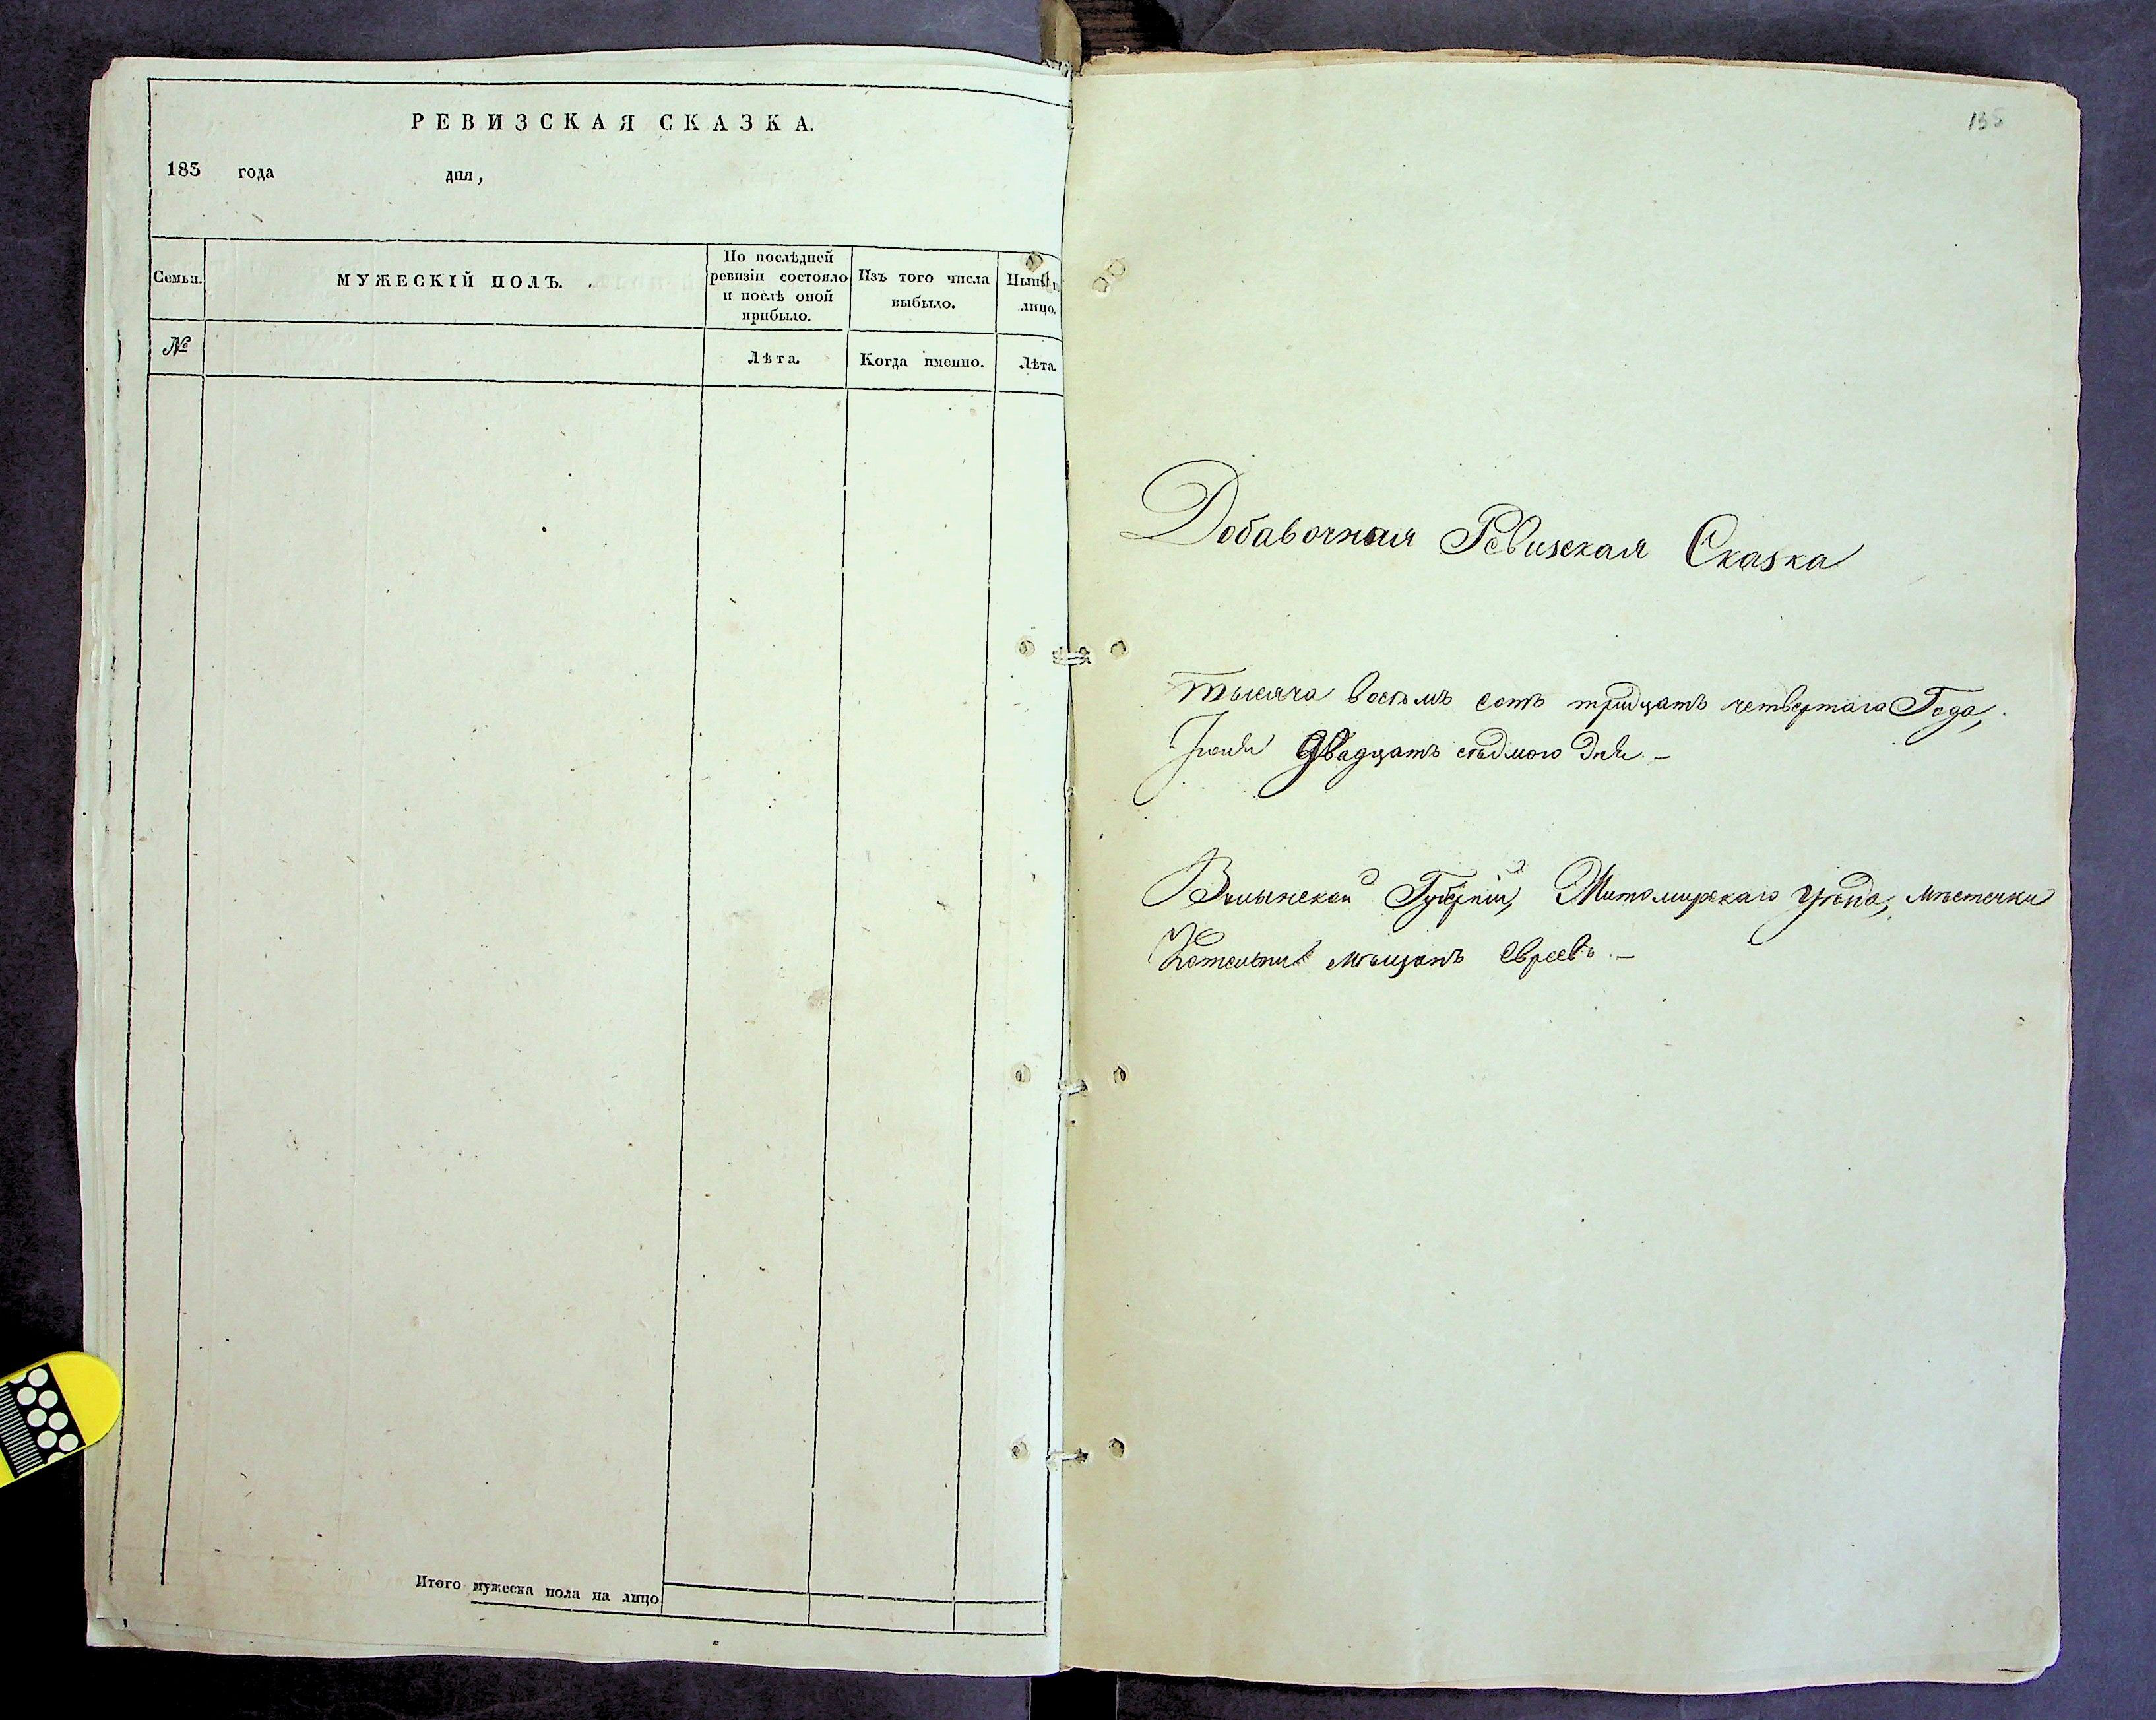 РЕВИЗСКАЯ СКАЗКА.
183 года дня,
Семьи.
МУЖЕСКІЙ ПОЛЪ.
По послѣдней
ревизіи состояло
и послѣ оной
прибыло.
Изъ того числа
выбыло.
лицо.
№
Лѣта.
Когда именно.
Лѣта.
Итого мужеска пола на лицо
Добавочная Ревизская Сказка
Тысяча восемь сотъ тридцать четвертаго Года,
двадцать седмого дня. —
Волынской Губерніи, Житомирскаго уѣзда, мѣстечки
Котельни мѣщанъ евреевъ. —